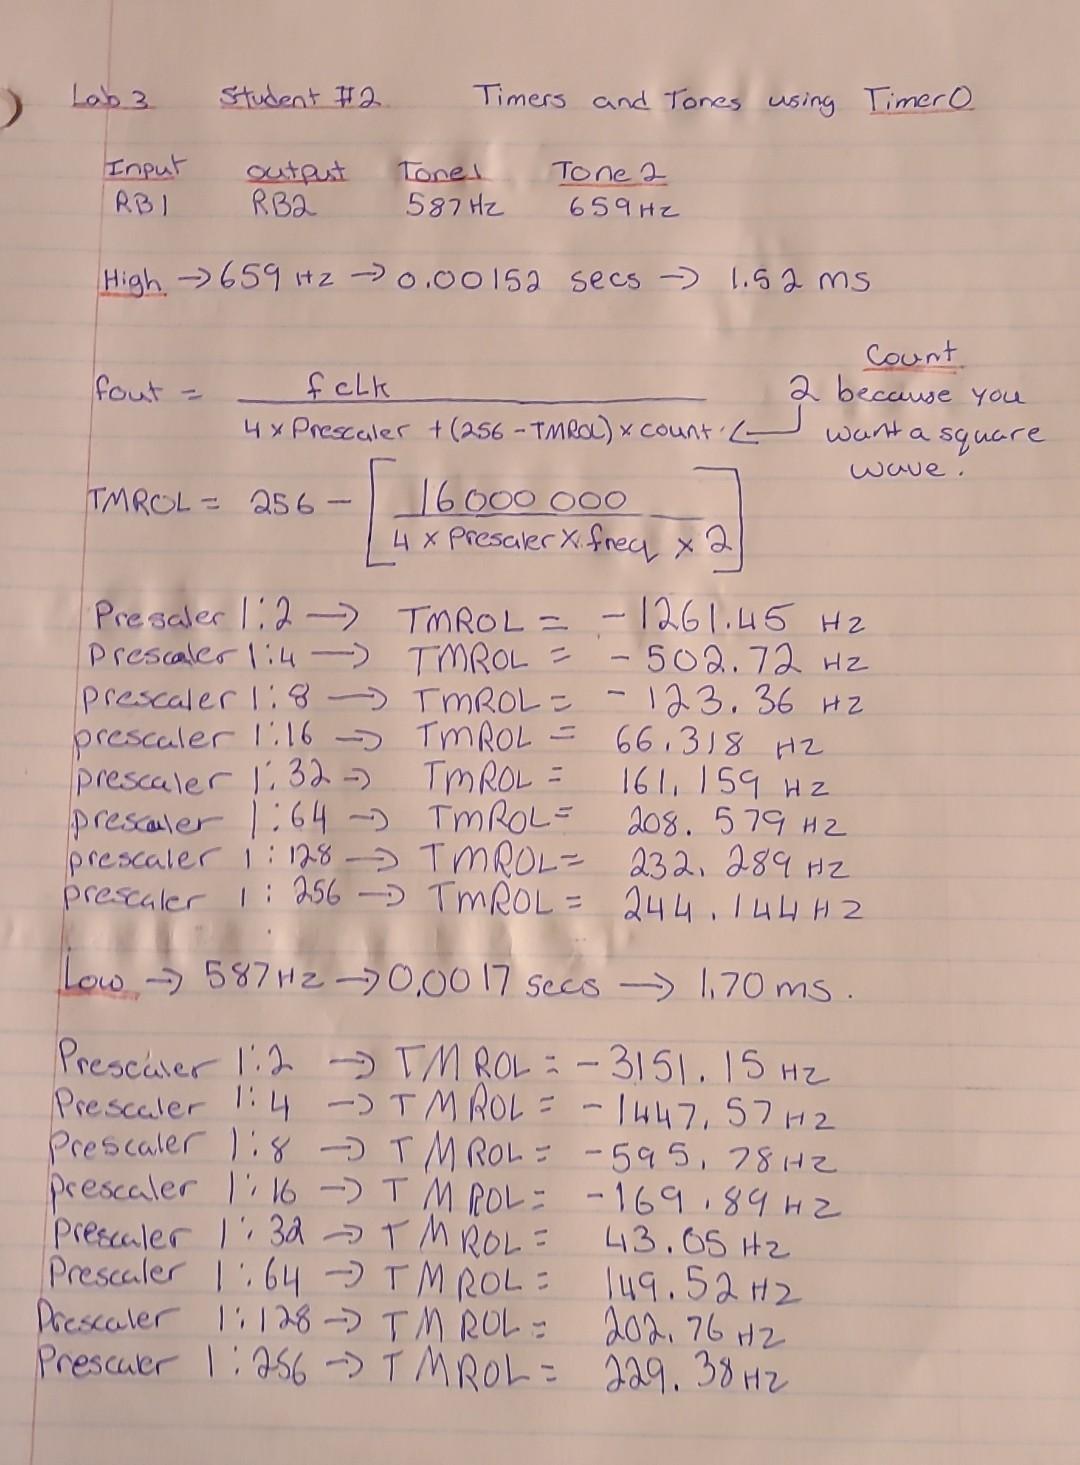 Lab 3 Student #2 Timers and Tones using Timer0
Input output Tone1 Tone 2
RB1 RB2 587Hz 659Hz
High → 659 Hz → 0.00152 secs → 1.52 ms
Count
fout = fclk 2 because you
4 x Prescaler + (256 - TMROL) x count. ← want a square
wave.
TMROL = 256 - [ 16000 000
4 x Presaler x freq x 2 ]
Presaler 1:2 → TMROL = -1261.45 Hz
Prescaler 1:4 → TMROL = -502.72 Hz
prescaler 1:8 → TMROL = -123.36 Hz
prescaler 1:16 → TMROL = 66.318 Hz
prescaler 1:32 → TMROL = 161.159 Hz
prescaler 1:64 → TMROL = 208.579 Hz
prescaler 1:128 → TMROL = 232.289 Hz
prescaler 1:256 → TMROL = 244.144 Hz
Low → 587Hz → 0.0017 secs → 1.70 ms.
Prescaler 1:2 → TMROL = -3151.15 Hz
Prescaler 1:4 → TMROL = -1447.57 Hz
Prescaler 1:8 → TMROL = -595.78 Hz
prescaler 1:16 → TMROL = -169.89 Hz
Prescaler 1:32 → TMROL = 43.05 Hz
Prescaler 1:64 → TMROL = 149.52 Hz
Prescaler 1:128 → TMROL = 202.76 Hz
Prescaler 1:256 → TMROL = 229.38 Hz